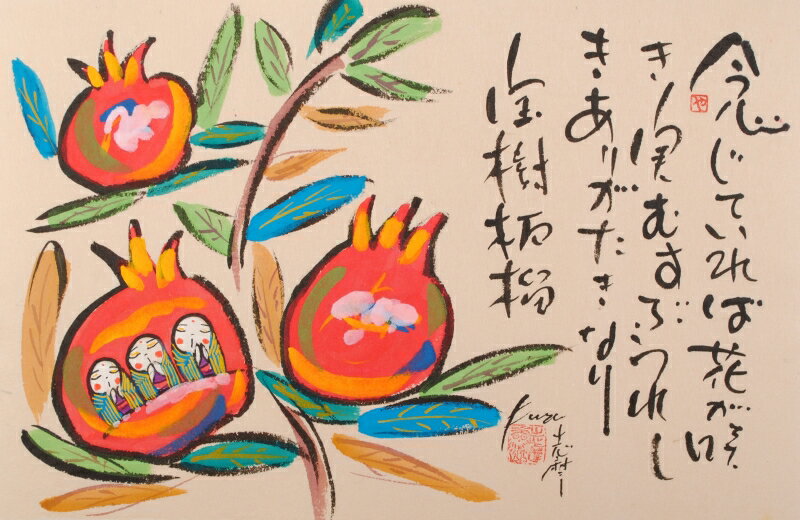 念じていれば花が咲
き実むすぶうれし
きありがたきなり
宝樹柘榴